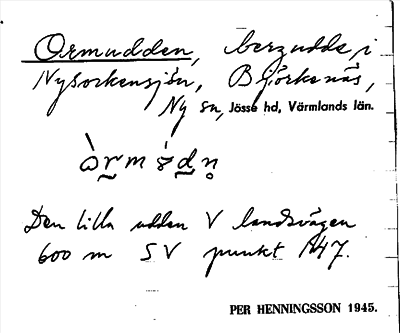 Ormudden, bergudde, i
Nysockensjön, Björkenäs,
Ny sn, Jösse hd, Värmlands län.
Den lilla udden V landsvägen
600 m SV punkt 147.
PER HENNINGSSON 1945.